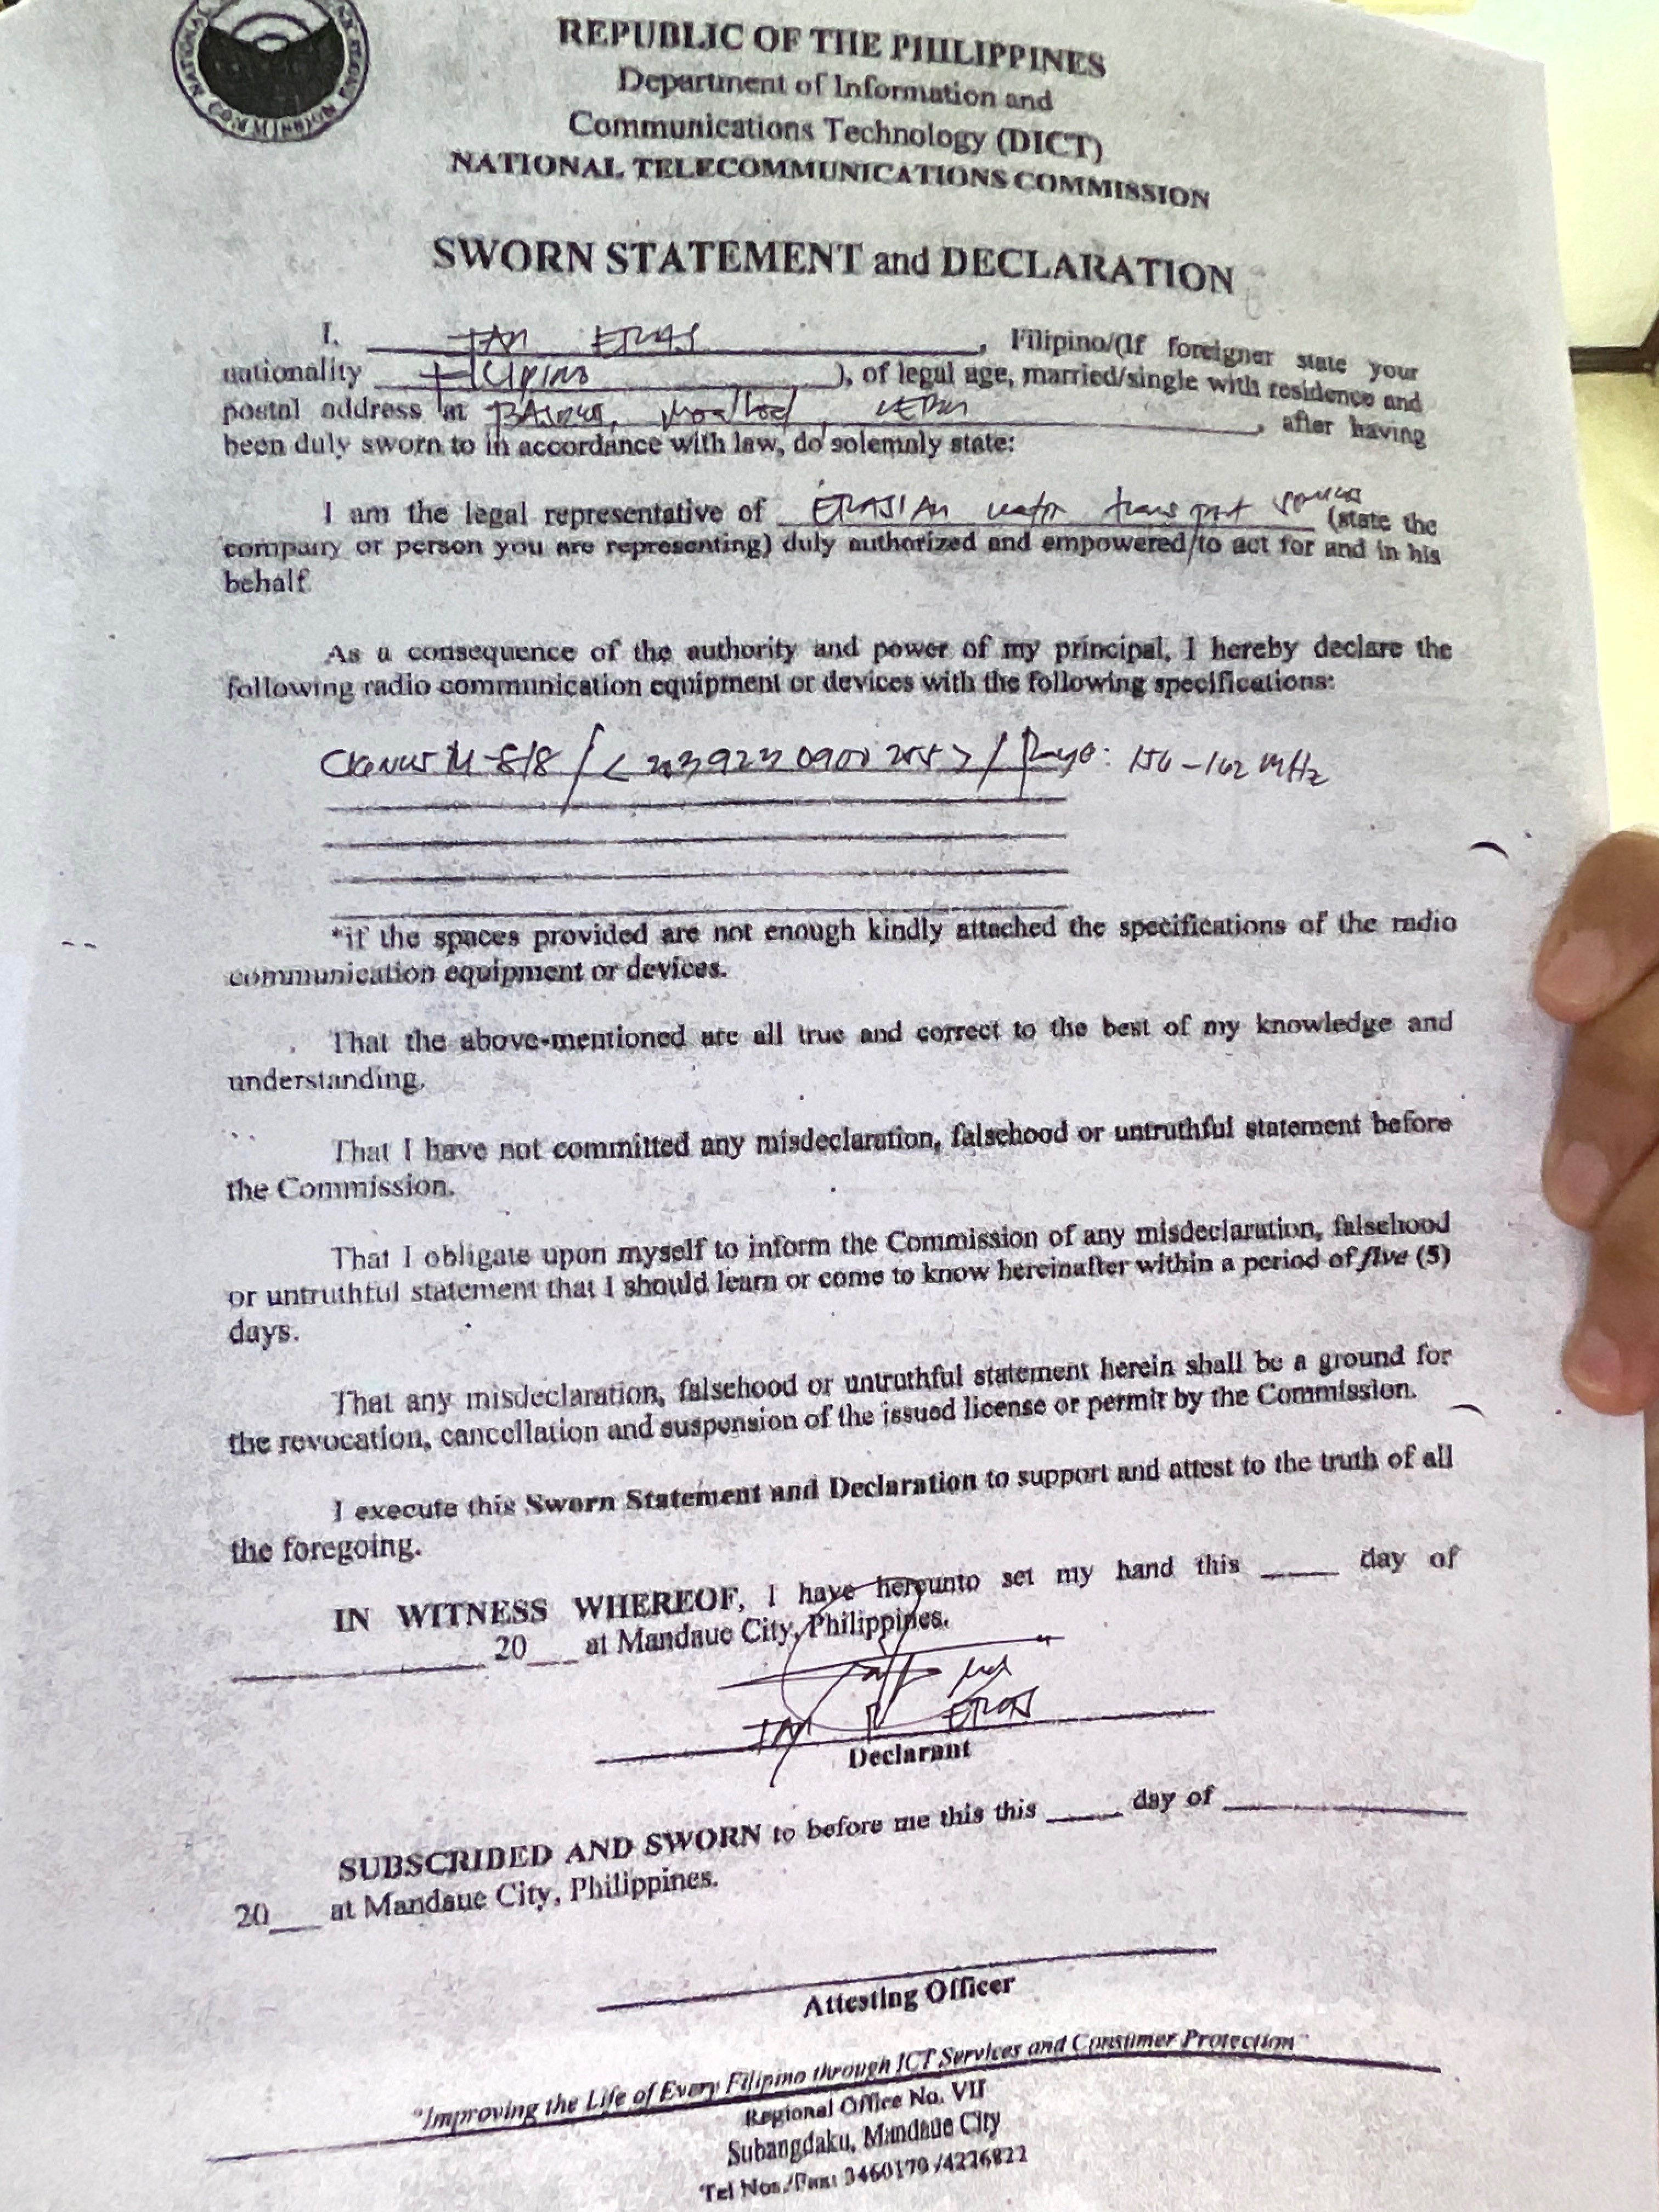 NATIONAL
COMMISSION
REPUBLIC OF THE PHILIPPINES
Department of Information and
Communications Technology (DICT)
NATIONAL TELECOMMUNICATIONS COMMISSION
SWORN STATEMENT and DECLARATION
I, IAN ERAS, Filipino/(If foreigner state your
nationality Filipino), of legal age, married/single with residence and
postal address at Moalboal, CEBU, after having
been duly sworn to in accordance with law, do solemnly state:
I am the legal representative of ERASIAN water transport services (state the
company or person you are representing) duly authorized and empowered to act for and in his
behalf.
As a consequence of the authority and power of my principal, I hereby declare the
following radio communication equipment or devices with the following specifications:
M-818 / Range: 156-162 MHz
*if the spaces provided are not enough kindly attached the specifications of the radio
communication equipment or devices.
That the above-mentioned are all true and correct to the best of my knowledge and
understanding.
That I have not committed any misdeclaration, falsehood or untruthful statement before
the Commission.
That I obligate upon myself to inform the Commission of any misdeclaration, falsehood
or untruthful statement that I should learn or come to know hereinafter within a period of five (5)
days.
That any misdeclaration, falsehood or untruthful statement herein shall be a ground for
the revocation, cancellation and suspension of the issued license or permit by the Commission.
I execute this Sworn Statement and Declaration to support and attest to the truth of all
the foregoing.
IN WITNESS WHEREOF, I have hereunto set my hand this ____ day of
____ 20___ at Mandaue City, Philippines.
IAN ERAS
Declarant
SUBSCRIBED AND SWORN to before me this this ____ day of ____
20___ at Mandaue City, Philippines.
Attesting Officer
"Improving the Life of Every Filipino through ICT Services and Consumer Protection"
Regional Office No. VII
Subangdaku, Mandaue City
Tel Nos./Fax: 3460179 /4226822